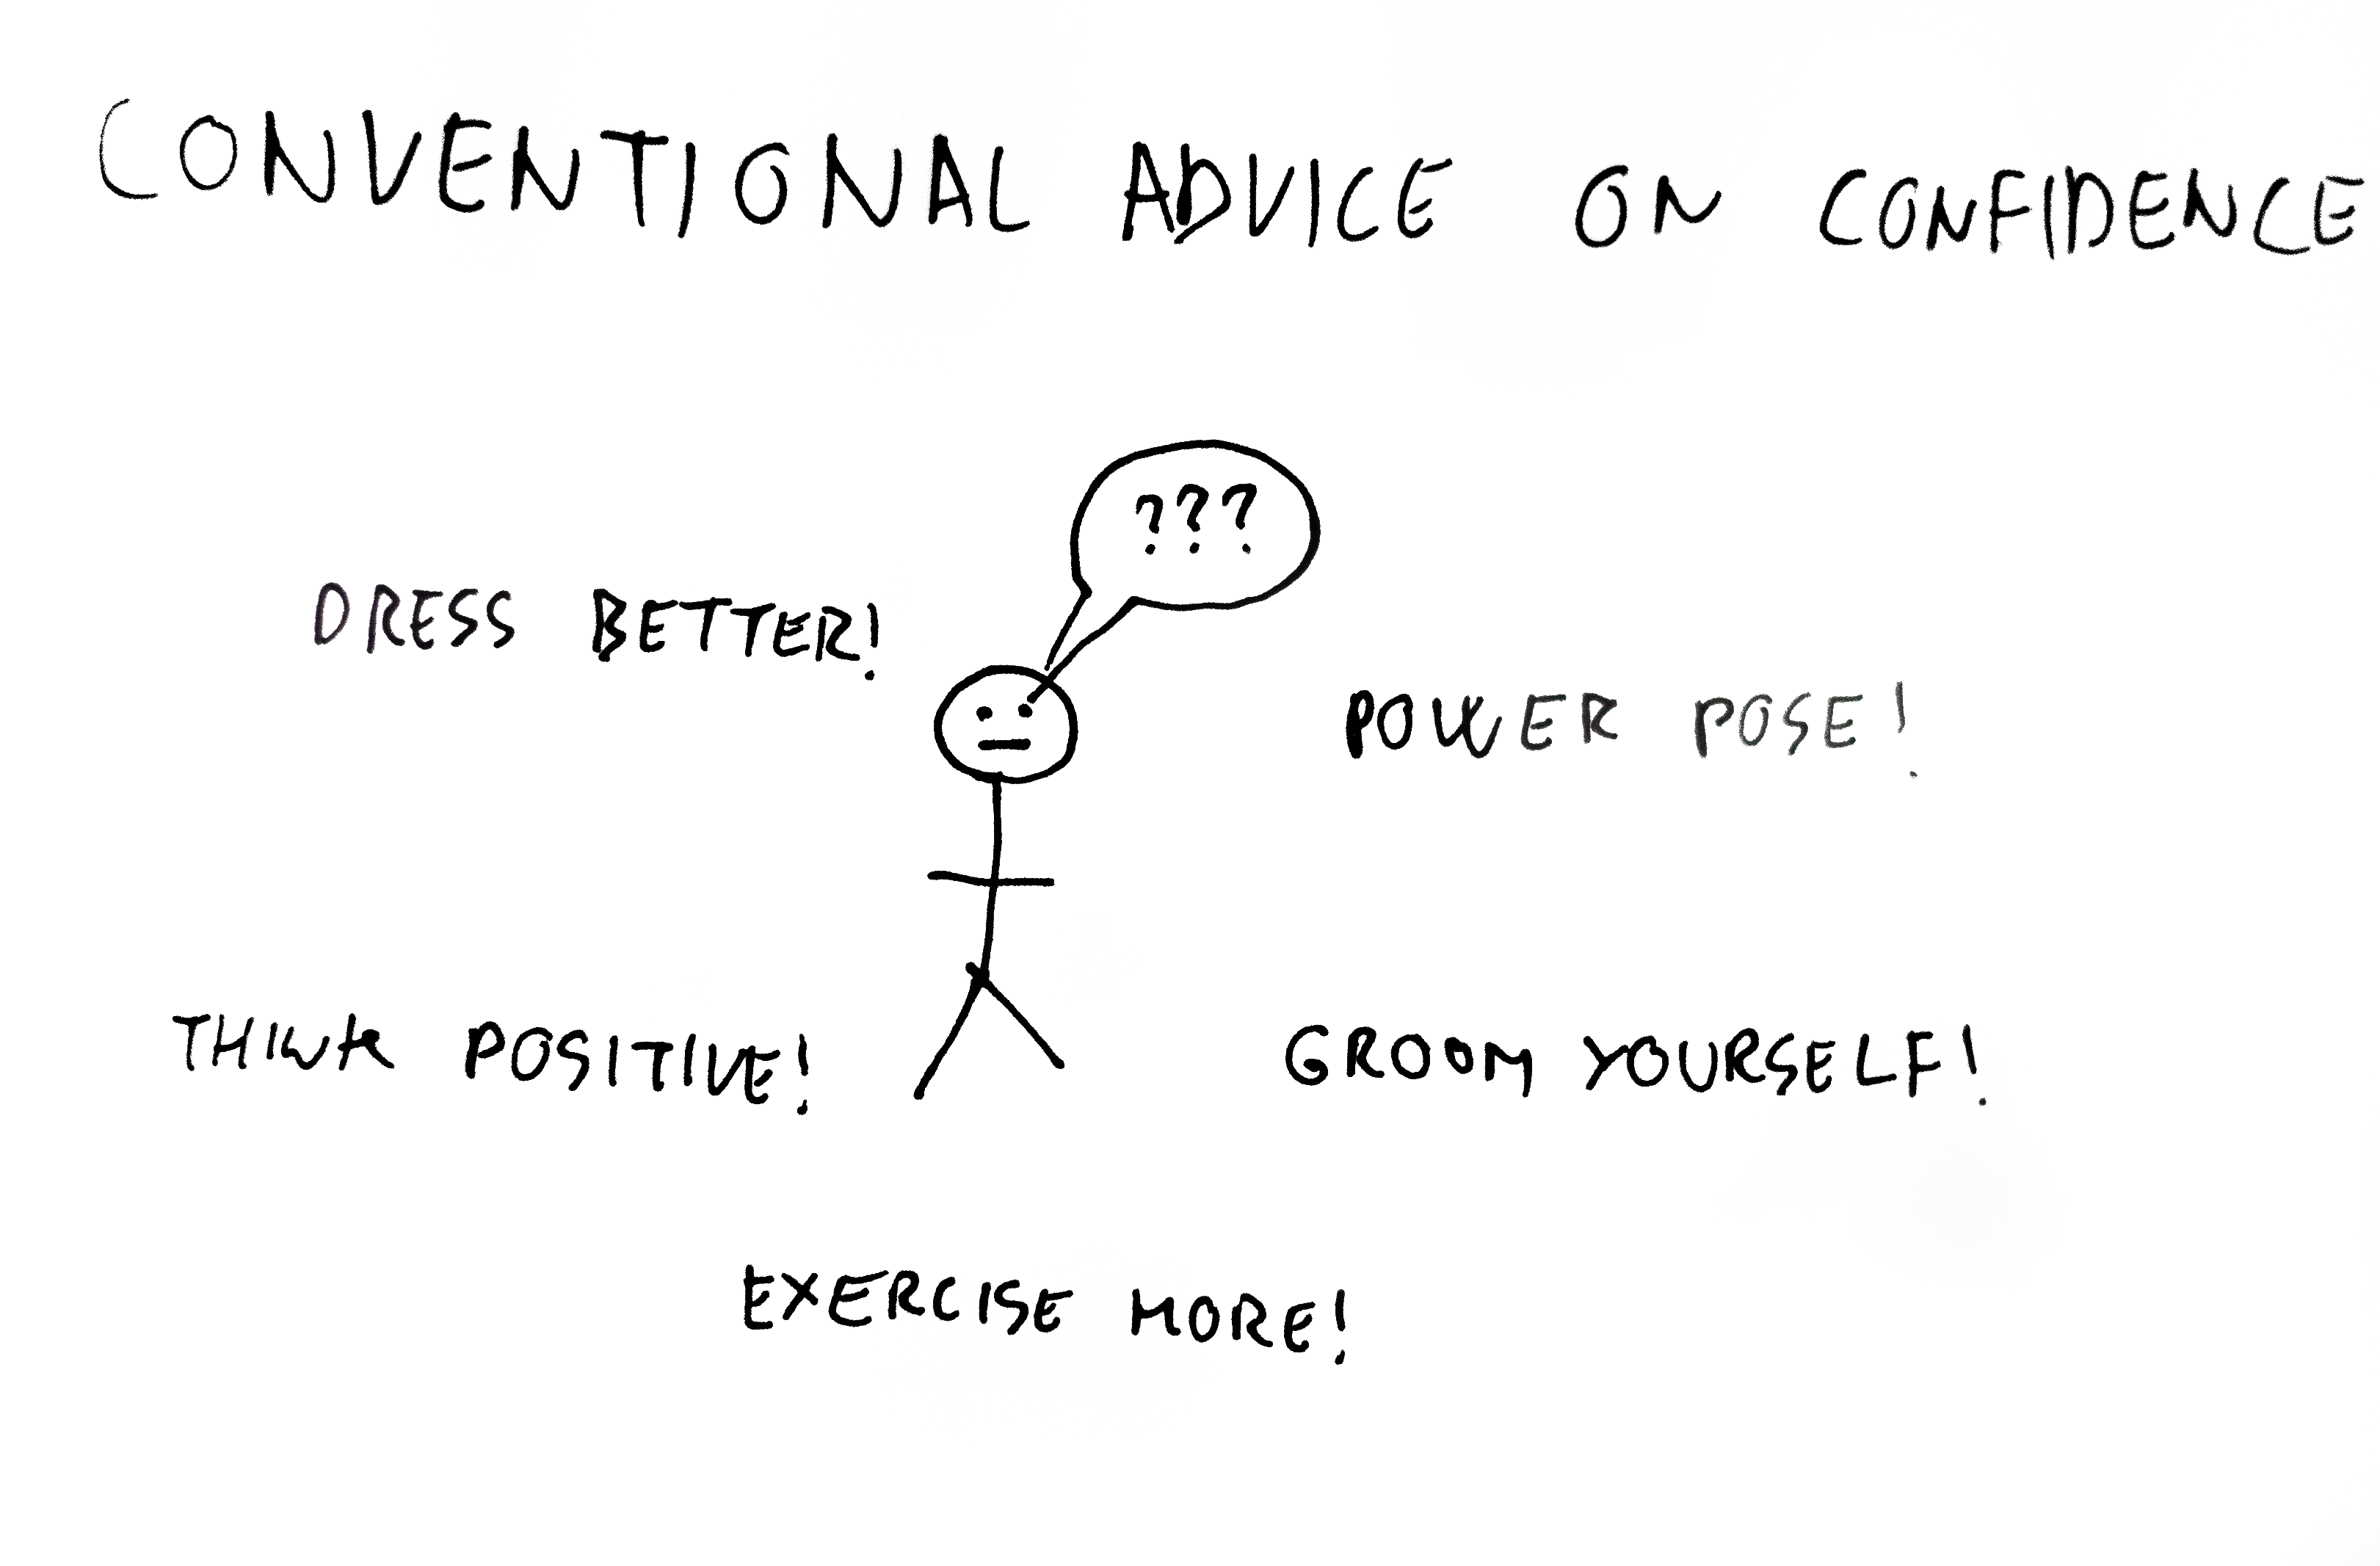 CONVENTIONAL ADVICE ON CONFIDENCE
???
DRESS BETTER!
POWER POSE!
THINK POSITIVE!
GROOM YOURSELF!
EXERCISE MORE!